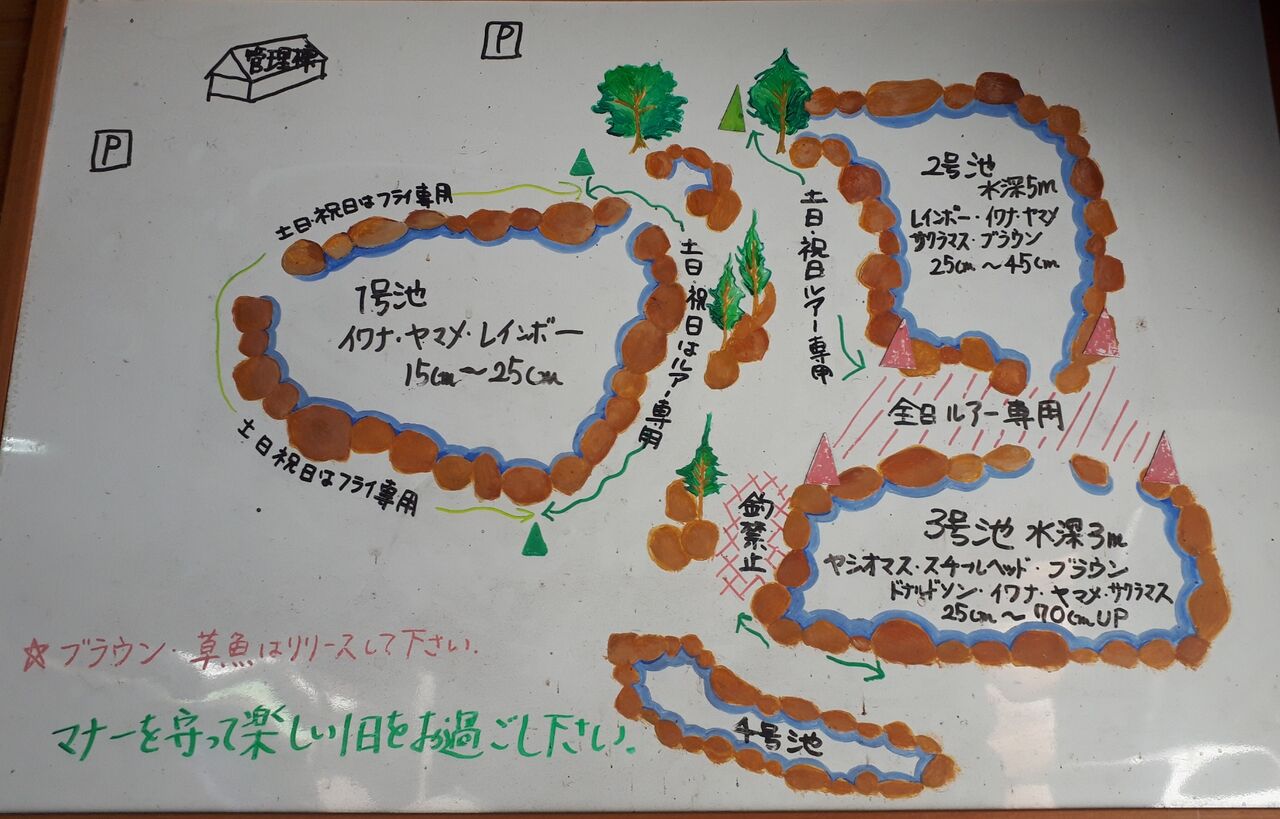 管理棟
P
P
土日・祝日はフライ専用
1号池
イワナ・ヤマメ・レインボー
15cm〜25cm
土日祝日はフライ専用
土日・祝日はルアー専用
土日・祝日ルアー専用
2号池
水深5m
レインボー・イワナ・ヤマメ
サクラマス・ブラウン
25cm〜45cm
全日ルアー専用
釣禁止
3号池 水深3m
ヤシオマス・スチールヘッド・ブラウン
ドナルドソン・イワナ・ヤマメ・サクラマス
25cm〜70cmUP
4号池
☆ブラウン・草魚はリリースして下さい.
マナーを守って楽しい1日をお過ごし下さい.